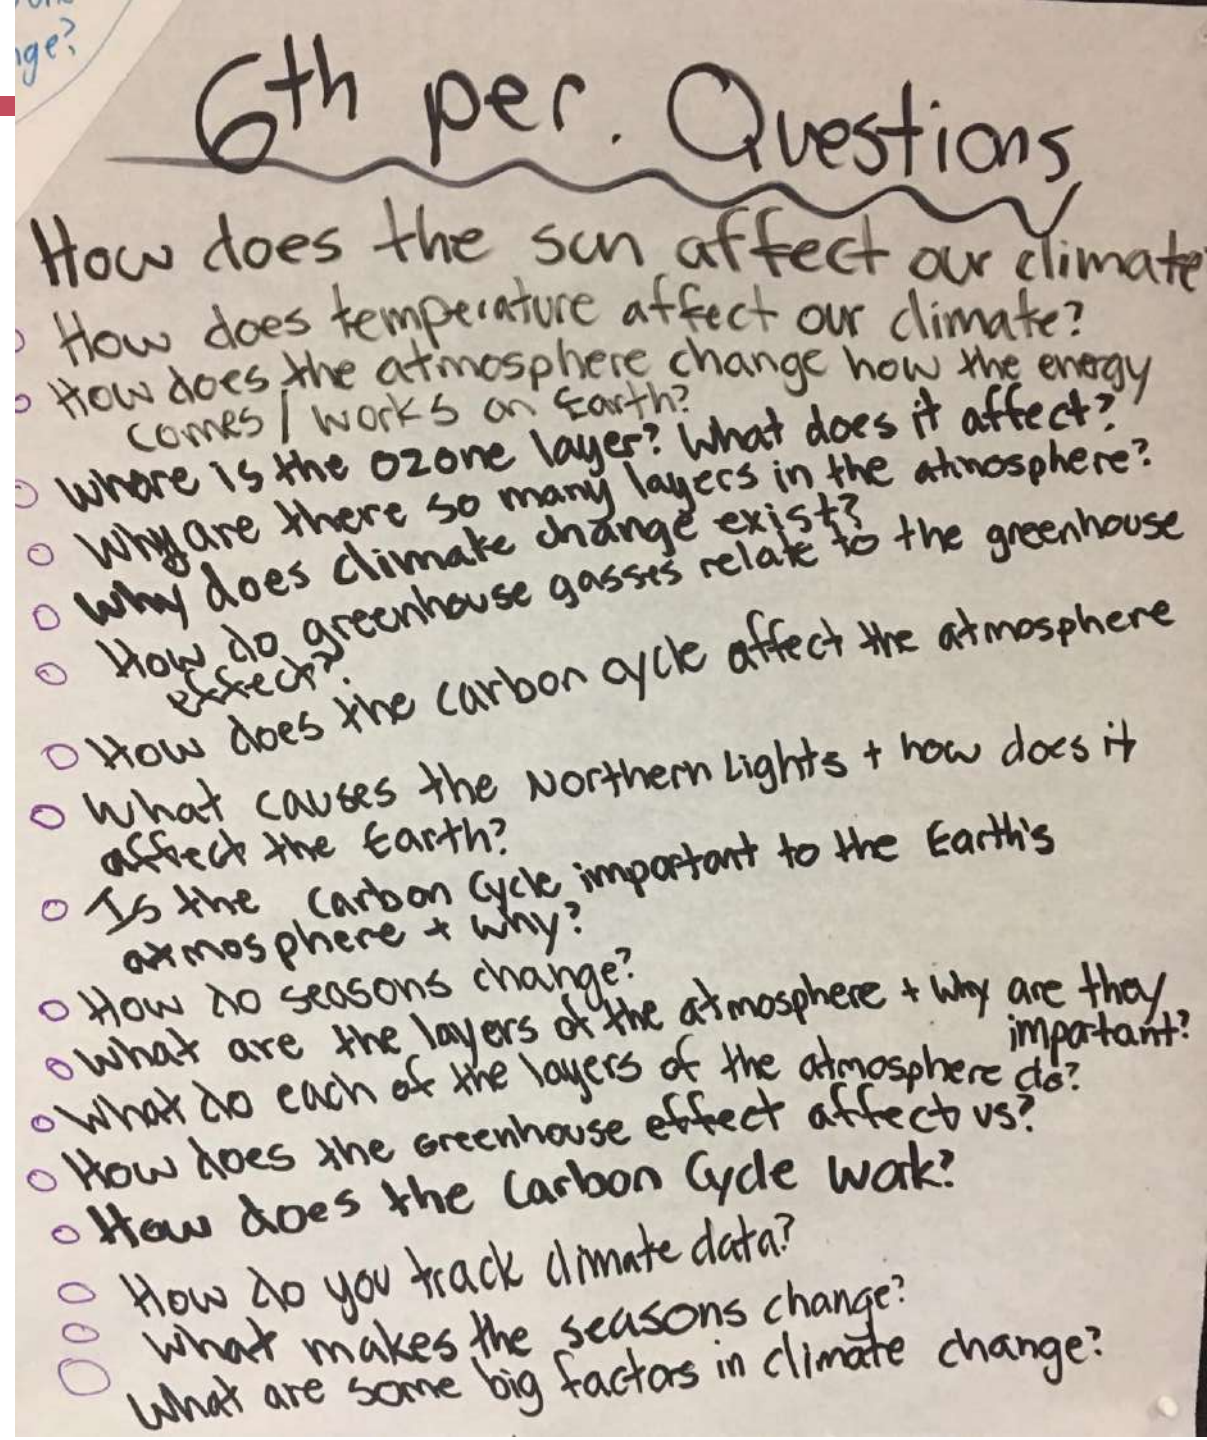 nge?
6th per. Questions
How does the sun affect our climate
How does temperature affect our climate?
How does the atmosphere change how the energy
comes / works on Earth?
Where is the ozone layer? What does it affect?
Why are there so many layers in the atmosphere?
Why does climate change exist?
How do greenhouse gasses relate to the greenhouse
effect?
How does the carbon cycle affect the atmosphere
What causes the Northern Lights + how does it
affect the Earth?
Is the Carbon Cycle important to the Earth's
atmosphere + why?
How do seasons change?
What are the layers of the atmosphere + why are they
important?
What do each of the layers of the atmosphere do?
How does the Greenhouse effect affect us?
How does the Carbon Cycle work?
How do you track climate data?
What makes the seasons change?
What are some big factors in climate change?